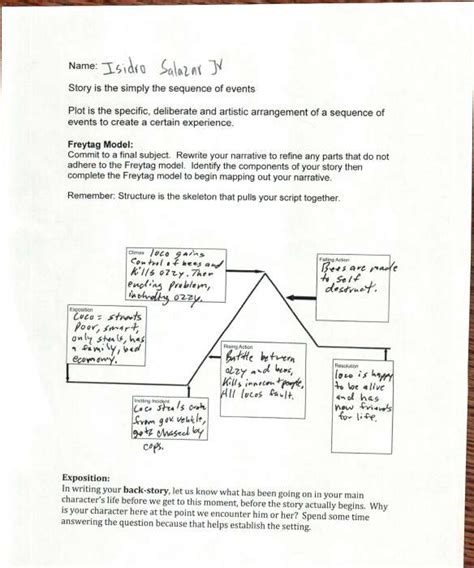 Name: Isidro Salazar Jr
Story is the simply the sequence of events
Plot is the specific, deliberate and artistic arrangement of a sequence of
events to create a certain experience.
Freytag Model:
Commit to a final subject. Rewrite your narrative to refine any parts that do not
adhere to the Freytag model. Identify the components of your story then
complete the Freytag model to begin mapping out your narrative.
Remember: Structure is the skeleton that pulls your script together.
Climax loco gains
control of bees and
Kills ozzy. Then
ending problem,
ozzy.
Falling Action
Bees are made
to self
destruct.
Exposition
Loco = streets
Poor, smart,
only steals, has
a family, bad
economy.
Rising Action
Battle between
ozzy and bees,
Kills innocent people,
All locos fault.
Resolution
loco is happy
to be alive
and has
new friends
for life.
Inciting Incident
Loco steals crate
from gov vehicle,
gets chased by
cops.
Exposition:
In writing your back-story, let us know what has been going on in your main
character's life before we get to this moment, before the story actually begins. Why
is your character here at the point we encounter him or her? Spend some time
answering the question because that helps establish the setting.